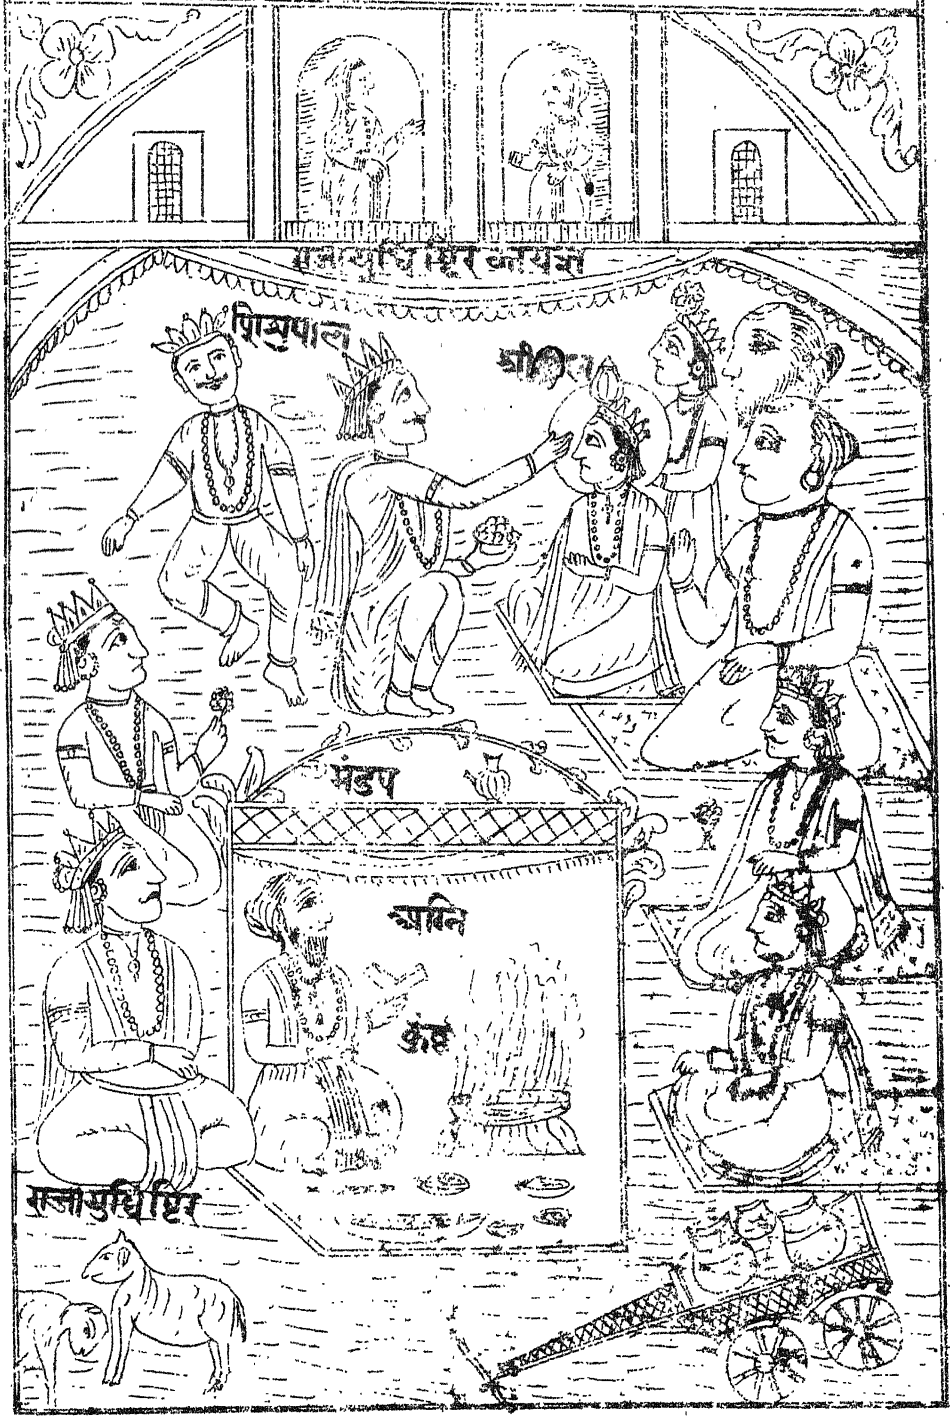 राजा युधिष्ठिर का यज्ञ
शिशुपाल
श्री
मंडप
अग्नि
कुंड
राजा युधिष्ठिर